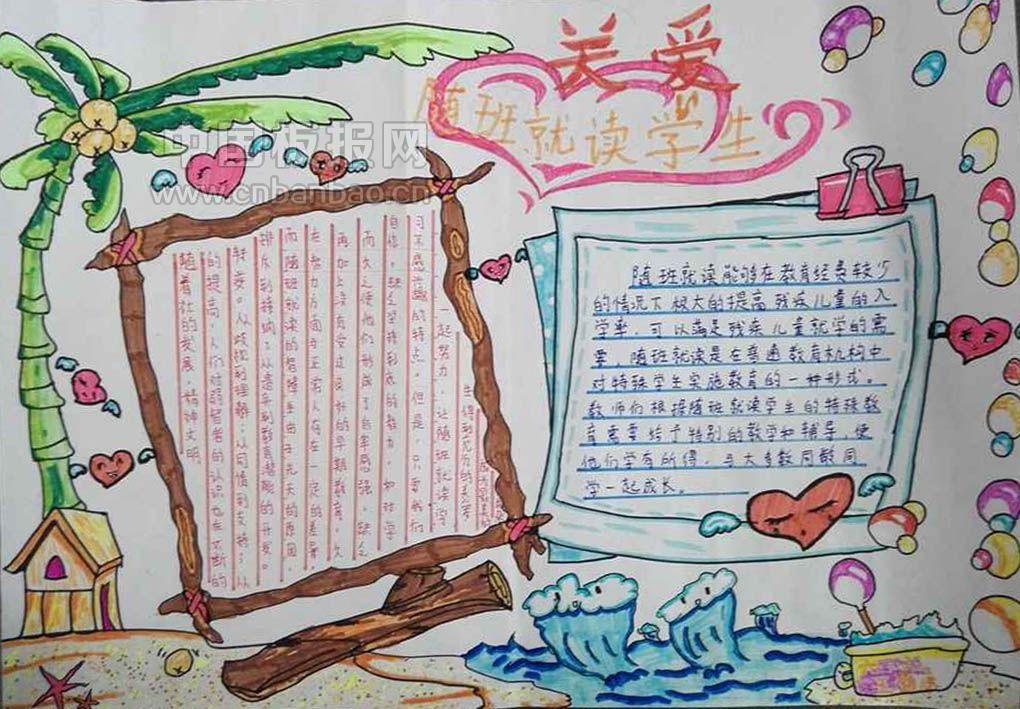 关爱
随班就读学生
中国板报网
www.cnbanbao.cn
随班就读能够在教育经费较少
的情况下极大的提高残疾儿童的入
学率，可以满足残疾儿童就学的需
要，随班就读是在普通教育机构中
对特殊学生实施教育的一种形式。
教师们根据随班就读学生的特殊教
育需要给予特别的教学和辅导，使
他们学有所得，与大多数同龄同
学一起成长。
随着社的发展，精神文明
的提高，人们对弱智者的认识也在不断的
转变。从歧视到理解；从同情到支持；从
排斥到接纳；从遗弃到教育潜能的开发。
而随班就读的智障生由于先天的原因，
在智力方面与正常人存在一定的差异，
再加上没有受过良好的早期教育，久
而久之使他们形成了自卑感强，缺乏
自信，缺乏坚持到底的毅力，如对学
习不感兴趣的特点。但是，只要我们
一起努力，让随班就读学
生得到充分的关爱